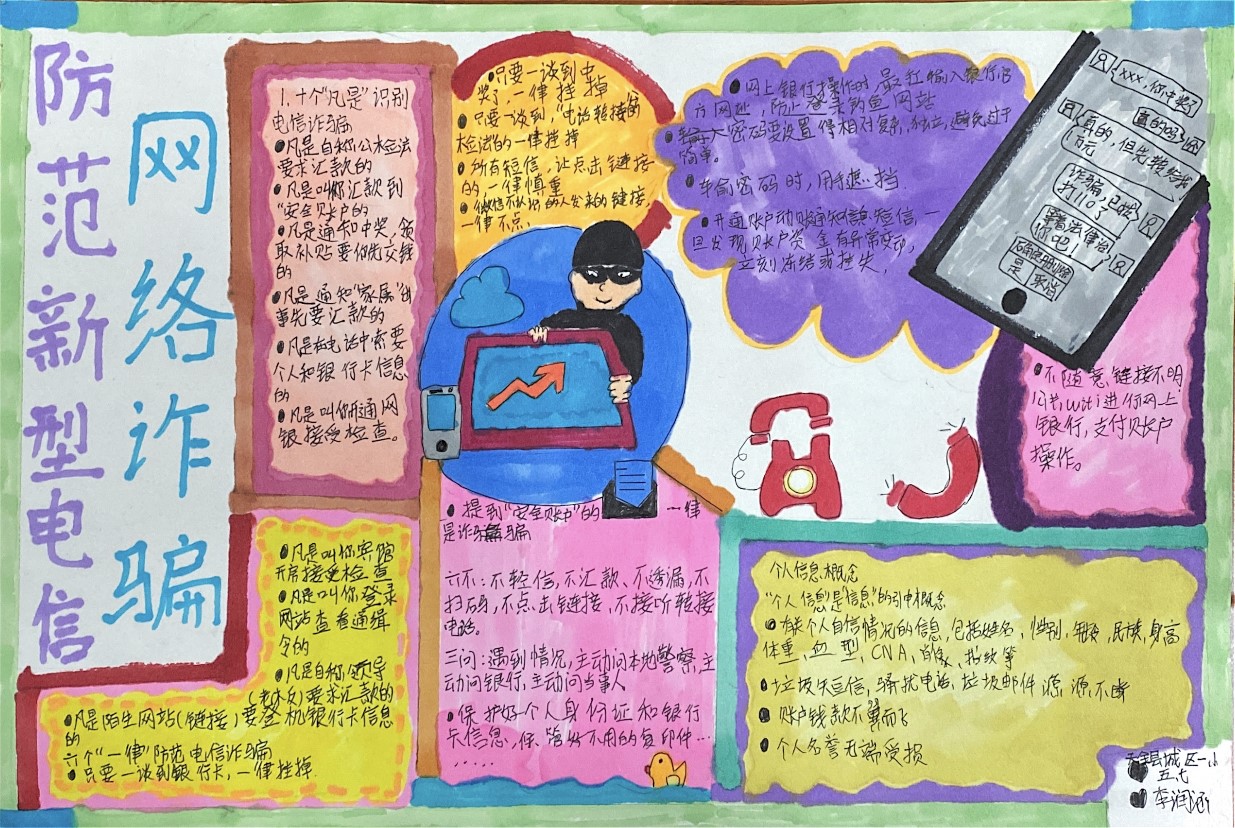 防范新型电信
网络诈骗
1.十个“凡是”识别
电信诈骗
凡是自称公检法
要求汇款的
凡是叫你汇款到
“安全账户”的
凡是通知中奖,领
取补贴要你先交钱
的
凡是通知“家属”出
事先要汇款的
凡是在电话中索要
个人和银行卡信息
的
凡是叫你开通网
银接受检查。
凡是叫你宾馆
开房接受检查
凡是叫你登录
网站查看通缉
令的
凡是自称领导
要求汇款的
凡是陌生网站(链接)要登机银行卡信息
的
六个“一律”防范电信诈骗
只要一谈到银行卡,一律挂掉
只要一谈到中
奖了,一律挂掉
只要一谈到,“电话转接的
检法”的一律挂掉
所有短信,让点击链接
的,一律慎重
微信不认识的人发来的链接,
一律不点。
提到“安全账户”的 一律
是诈骗
六不:不轻信,不汇款、不透漏,不
扫码,不点击链接,不接听转接
电话。
三问:遇到情况,主动问本地警察,主
动问银行,主动问当事人
保护好个人身份证和银行
卡信息,保管好不用的复印件…
……
网上银行操作时,最好输入银行官
方网址,防止登录钓鱼网站
密码要设置得相对复杂,独立,避免过于
简单。
输密码时,用手遮挡.
开通账户动账通知短信,一
旦发现账户资金有异常变动,
立刻冻结或挂失,
xxx,你中奖了
真的吗
真的,但先转给我
百元
诈骗,已被
打110了
等着法律治
你吧
确定删除
是 取消
不随意链接不明
公共wifi进行网上
银行,支付账户
操作。
个人信息概念
“个人信息”是“信息”的引申概念
有关个人自信情况的信息,包括姓名,性别,年龄,民族,身高
体重、血型,CNA,肖象、指纹等
垃圾矢短信,骚扰电话,垃圾邮件源源不断
账户钱款不翼而飞
个人名誉无端受损
县城区一小
五七
李润涵